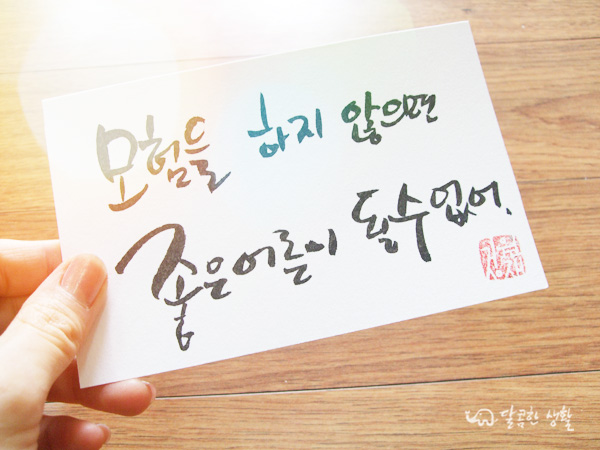 모험을 하지 않으면
좋은어른이 될수없어.
달콤한 생활